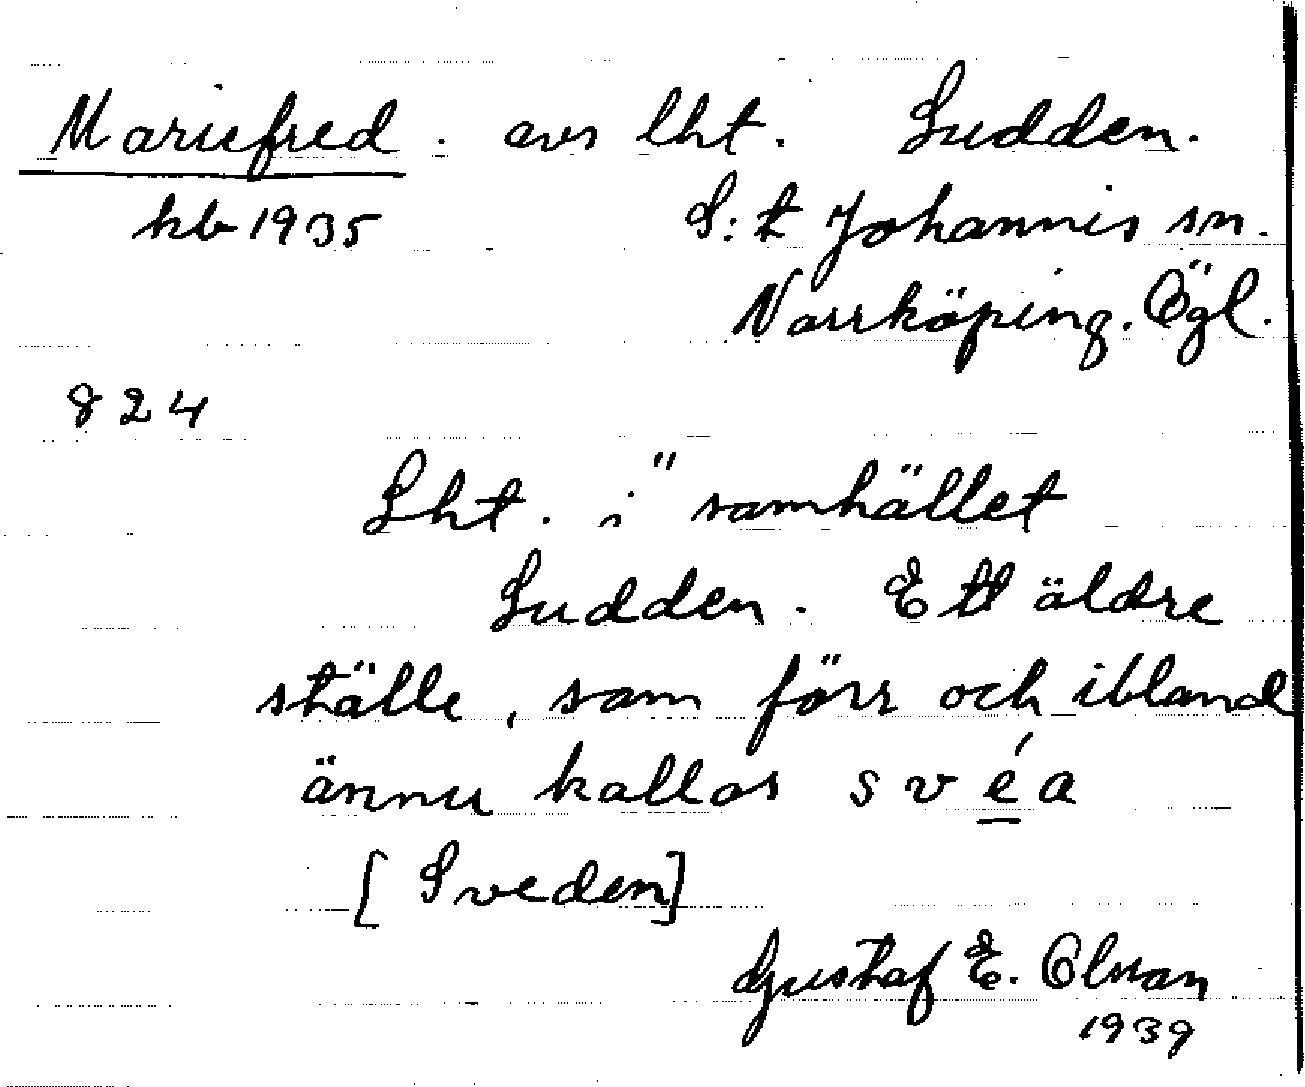 Mariefred. avs lht. Sudden.
kb 1935 S:t Johannis sn.
Norrköping. Ögl.
824
Lht. i "samhället
Sudden. Ett äldre
ställe, som förr och ibland
ännu kallas svéa
[Sveden]
Gustaf E. Olsson
1939